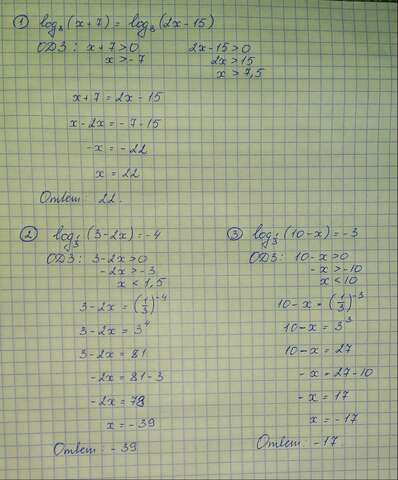 ① log₃(x+7) = log₃(2x-15)
ОДЗ: x+7>0 2x-15>0
x>-7 2x>15
x>7,5
x+7=2x-15
x-2x=-7-15
-x=-22
x=22
Ответ: 22.
② log_{1/3}(3-2x)=-4
ОДЗ: 3-2x>0
-2x>-3
x<1,5
3-2x=(1/3)^{-4}
3-2x=3⁴
3-2x=81
-2x=81-3
-2x=78
x=-39
Ответ: -39
③ log_{1/3}(10-x)=-3
ОДЗ: 10-x>0
-x>-10
x<10
10-x=(1/3)^{-3}
10-x=3³
10-x=27
-x=27-10
-x=17
x=-17
Ответ: -17